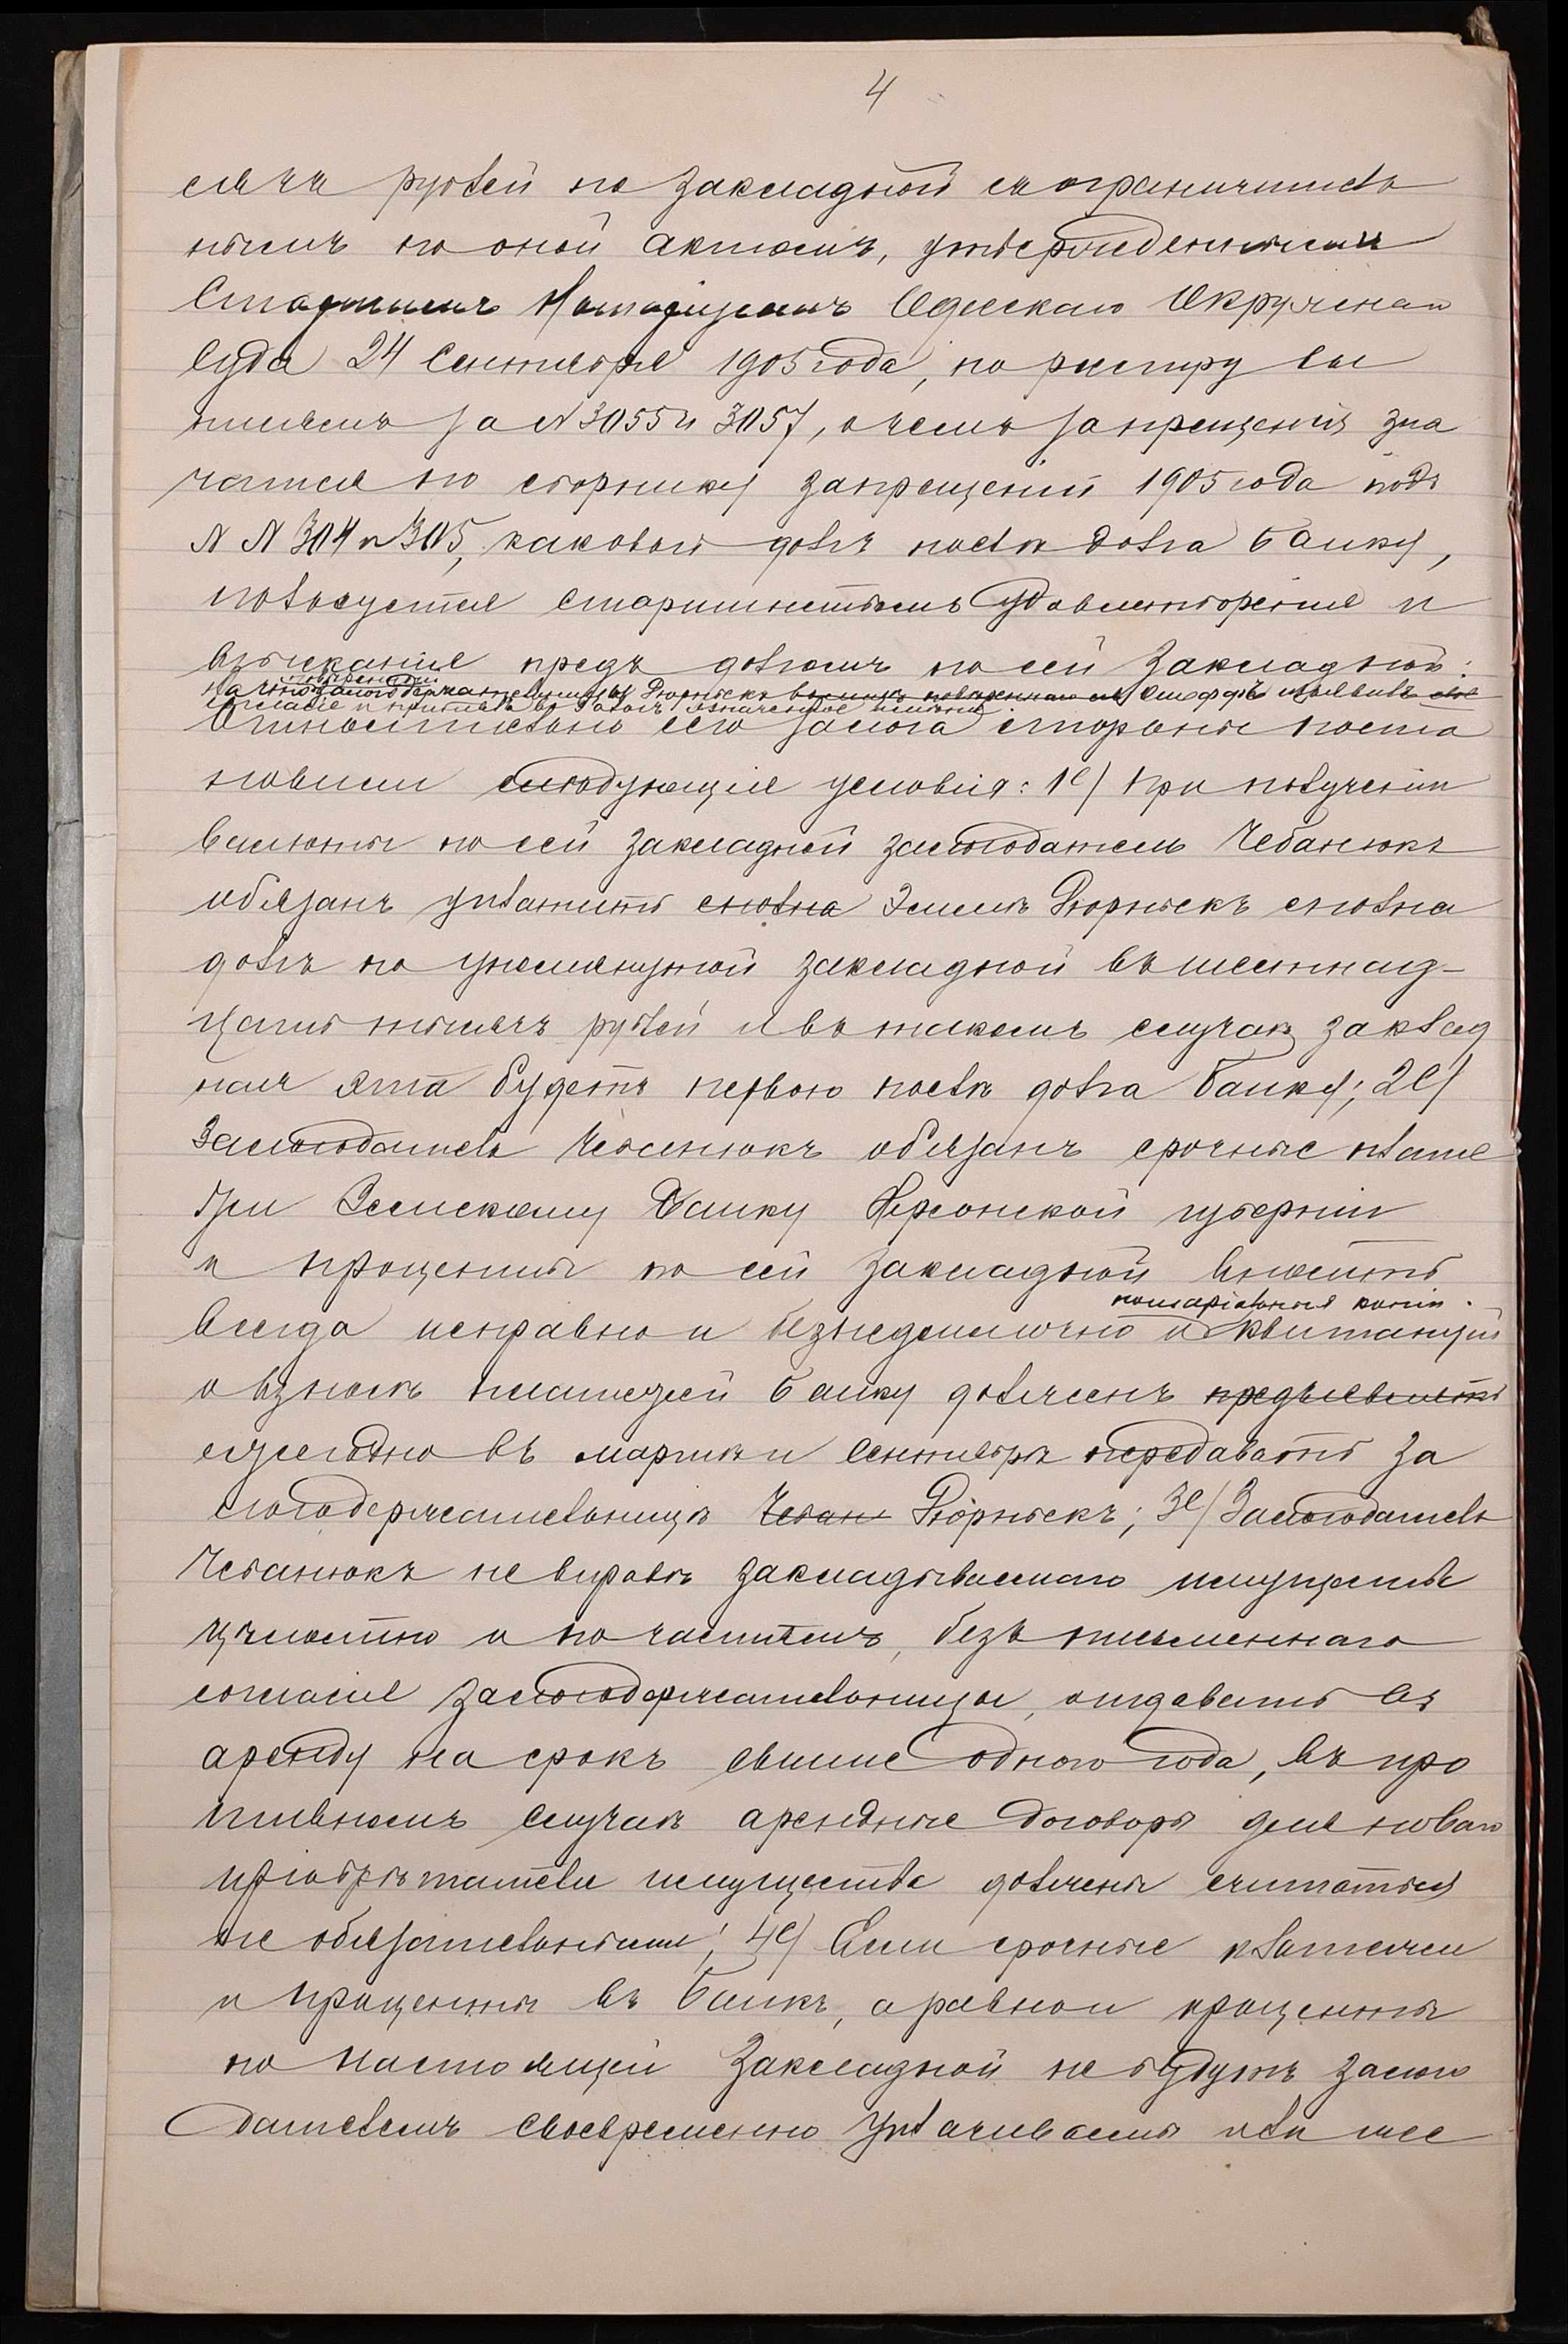 4
сячъ рублей по закладной съ ограничитель
нымъ по оной актомъ, утвержденнымъ
Старшимъ Нотаріусомъ Одесскаго Окружнаго
Суда 24 Сентября 1905 года, по реестру
за N 3055 и 3057, о чемъ запрещенія зна
чатся по сборнику запрещеній 1905 года подъ
N N 304 и 305, каковой долгъ послѣ долга Банку,
пользуется старшинствомъ удовлетворенія и
взысканія предъ долгомъ по сей закладной:
повѣренный
на что залогодержательницы Рюрнбекъ Эмоффъ изъявилъ свое
согласіе и принялъ въ залогъ означенное имѣніе
Относительно сего залога стороны поста
новили слѣдующія условія: 1е/ при полученіи
валюты по сей закладной залогодатель Чебанюкъ
обязанъ уплатить сполна Эмилѣ Рюрнбекъ сполна
долгъ по упомянутной закладной въ шестнад-
цать тысячъ рублей и въ такомъ случаѣ заклад
ная эта будетъ первою послѣ долга Банку; 2е/
Залогодатель Чебанюкъ обязанъ срочные плате
жи Земскому Банку Херсонской губерніи
и проценты по сей закладной вносить
нотаріальныя копіи
всегда исправно и безнедоимочно и квитанцій
о взносѣ платежей Банку долженъ предъявлять
ежегодно въ мартѣ и Сентябрѣ передавать за
логодержательницѣ Чебан Рюрнбекъ; 3е/ Залогодатель
Чебанюкъ не вправѣ закладываемаго имущества
цѣлостью и по частямъ, безъ письменнаго
согласія залогодержательницы, отдавать въ
аренду на срокъ свыше одного года, въ про
тивномъ случаѣ арендные договоры для новаго
пріобрѣтателя имущества должны считаться
не обязательными; 4е/ Если срочные платежи
и проценты въ Банкъ, а равно и проценты
по настоящей закладной не будутъ залого
дателемъ своевременно уплачиваемы или же